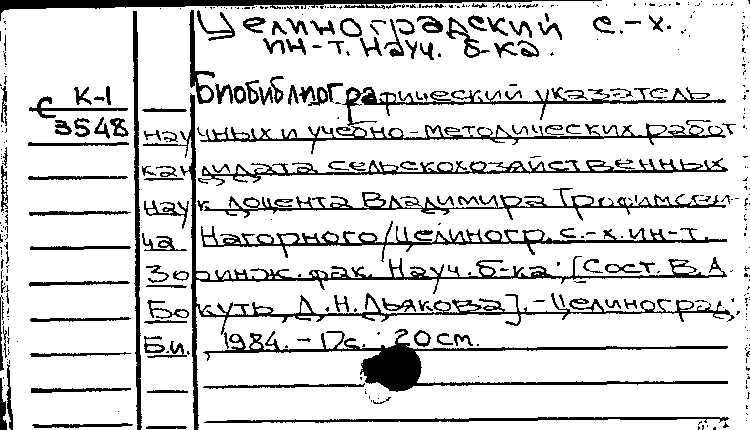 Целиноградский с.-х.
ин-т. Науч. б-ка.
Биобиблиографический указатель
К-1
С
3548
научных и учебно-методических работ
кандидата сельскохозяйственных
наук доцента Владимира Трофимови-
ча Нагорного/Целиногр. с.-х. ин-т.
Зооинж. фак. Науч. б-ка; [Сост. В.А.
Бокуть, Д.Н. Дьякова]. - Целиноград:
Б.и., 1984. - с.; 20 см.